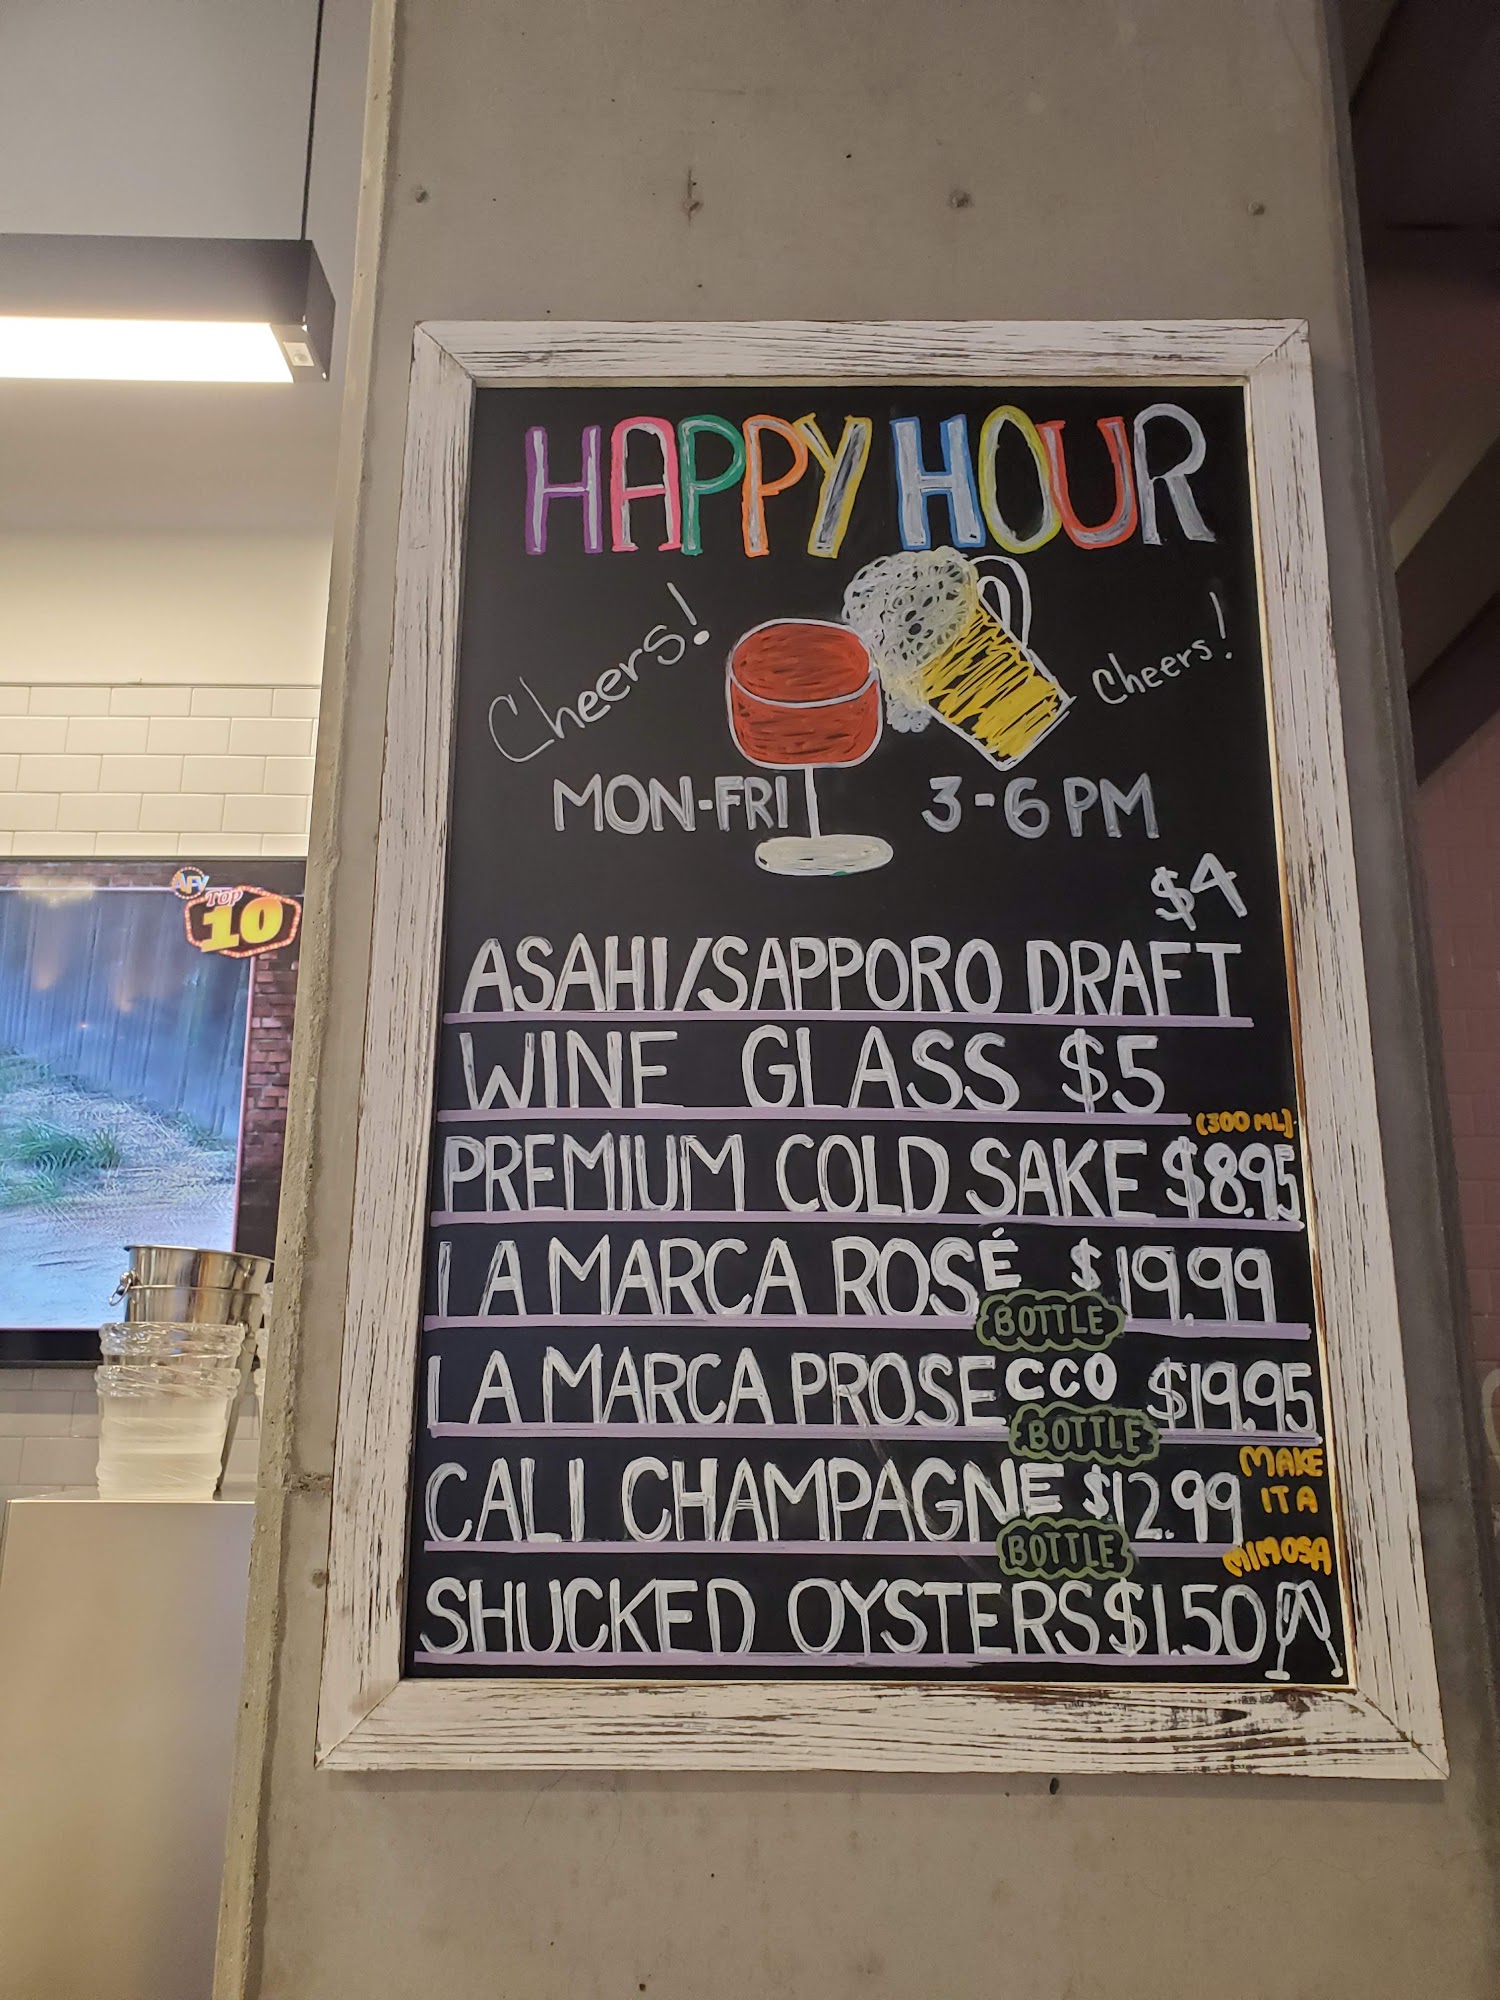 HAPPY HOUR
Cheers!
Cheers!
MON-FRI 3-6 PM
$4
ASAHI/SAPPORO DRAFT
WINE GLASS $5
(300 ML)
PREMIUM COLD SAKE $8.95
LA MARCA ROSÉ $19.99
BOTTLE
LA MARCA PROSECCO $19.95
BOTTLE
CALI CHAMPAGNE $12.99
BOTTLE
MAKE
IT A
MIMOSA
SHUCKED OYSTERS $1.50
AFV
Top
10